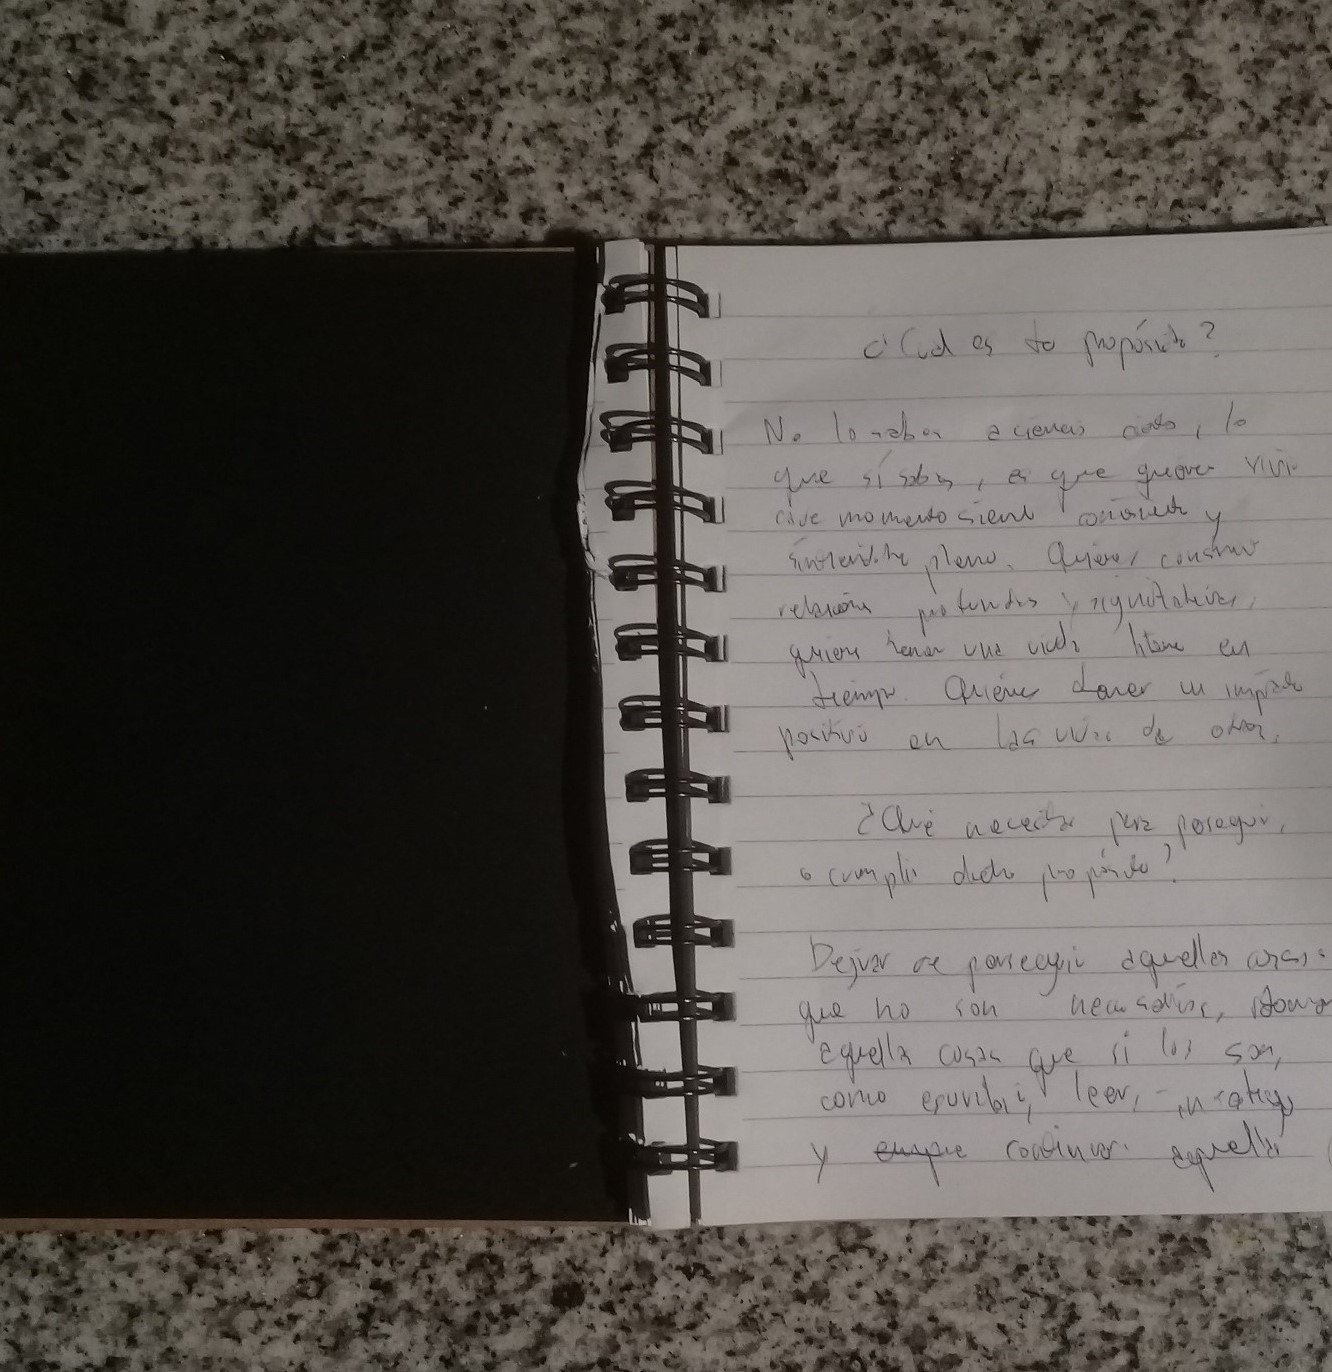 ¿Cual es tu propósito?
No lo sabes a ciencia cierta, lo
que sí sabes, es que quieres vivir
cada momento siendo consciente y
sintiéndote pleno. Quieres construir
relaciones profundas y significativas,
quieres tener una vida libre en
tiempo. Quieres tener un impacto
positivo en las vidas de otros.
¿Qué necesitas para perseguir,
o cumplir dicho propósito?
Dejar de perseguir aquellas cosas
que no son necesarias,
aquella cosas que si los son,
como escribir, leer,
y continuar aquella